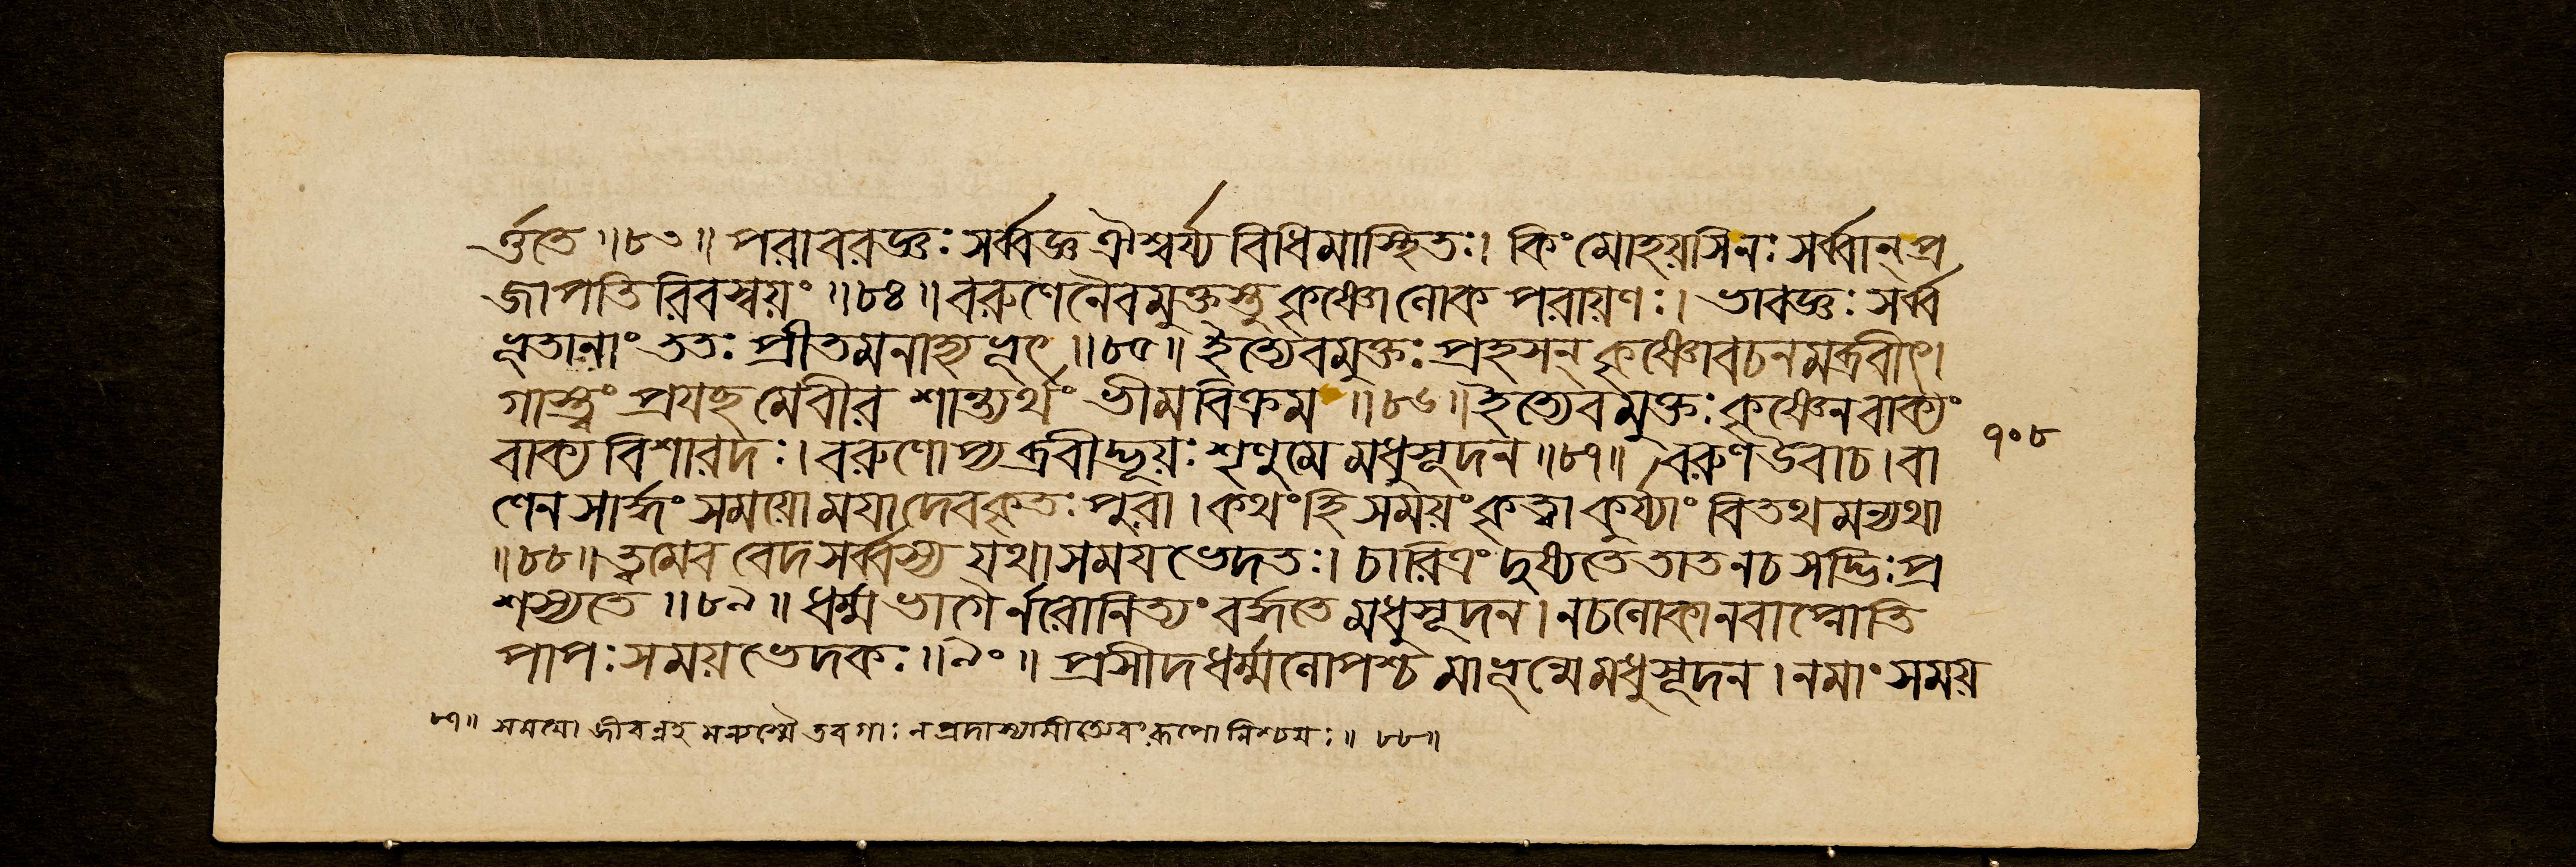 র্ত্ততে ॥৮৩॥ পরাবরজ্ঞঃ সর্ব্বজ্ঞ ঐশ্বর্য্য বিধিমাস্থিতঃ। কিং মোহয়সি নঃ সর্ব্বান্ প্র
জাপতিরিবস্বয়ং ॥৮৪॥ বরুণেনৈবমুক্তস্তু কৃষ্ণোলোক পরায়ণঃ। ভাবজ্ঞঃ সর্ব্ব
ভূতানাং ততঃ প্রীতমনাহ্যভূৎ ॥৮৫॥ ইত্যেবমুক্তঃ প্রহসন্ কৃষ্ণোবচনমব্রবীৎ।
গাস্ত্বং প্রযচ্ছ মেবীর শান্ত্যর্থং ভীমবিক্রম ॥৮৬॥ ইত্যেবমুক্তঃ কৃষ্ণেন বাক্যং
বাক্য বিশারদঃ। বরুণোপ্যব্রবীদ্ভূয়ঃ শৃণুমে মধুসূদন ॥৮৭॥ বরুণউবাচ। বা
ণেন সার্দ্ধং সময়ো ময়াদেবকৃতঃ পুরা। কথং হি সময়ং কৃত্বা কুর্য্যাং বিতথমন্যথা
॥৮৮॥ ত্বমেব বেদ সর্ব্বস্য যথাসময়ভেদতঃ। চারিত্রং দুষ্যতে তাত ন চ সদ্ভিঃ প্র
শস্যতে ॥৮৯॥ ধর্ম্মভাগৈর্নরোনিত্যং বর্দ্ধতে মধুসূদন। নচলোকানবাপ্নোতি
পাপঃ সময়ভেদকঃ ॥৯০॥ প্রসীদধর্ম্মলোপশ্চ মাভূন্মেমধুসূদন। নমাং সময়
১০৮
৮৭॥ সময়ো জীবন্নহ তবগাঃ ন প্রদাস্যামীত্যেবংরূপো নিশ্চয়ঃ ॥ ৮৮॥